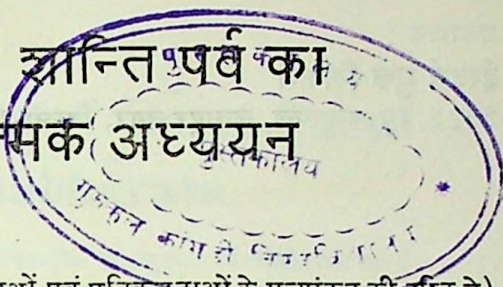 शान्ति पर्व का
मक अध्ययन
पुस्तकालय
गुरुकुल कांगड़ी
ओं एवं की दृष्टि से)